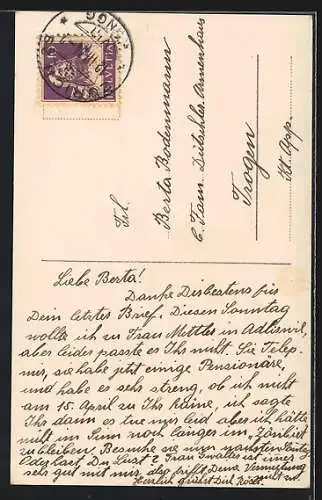 HELVETIA
Frl.
Berta Bodenmann
b. Fam. Ditschler. Armenhaus
Trogen
Kt. App.
Liebe Berta!
Danke Dir bestens für
Dein letztes Brief. Diesen Sonntag
wollte ich zu Frau Mettler in Adliswil,
aber leider passte es Ihr nicht. Sie Telep.
mir, sie habe jetzt einige Pensionäre,
und habe es sehr streng, ob ich nicht
am 15. April zu Ihr käme, ich sagte
Ihr dann es tue mir leid aber ich hätte
nicht im Sinn noch länger im
zu bleiben. Besuche sie einen nächsten
Du
sei gut mit mir, das Deine Vermutung
Herzlich grüsst Dich